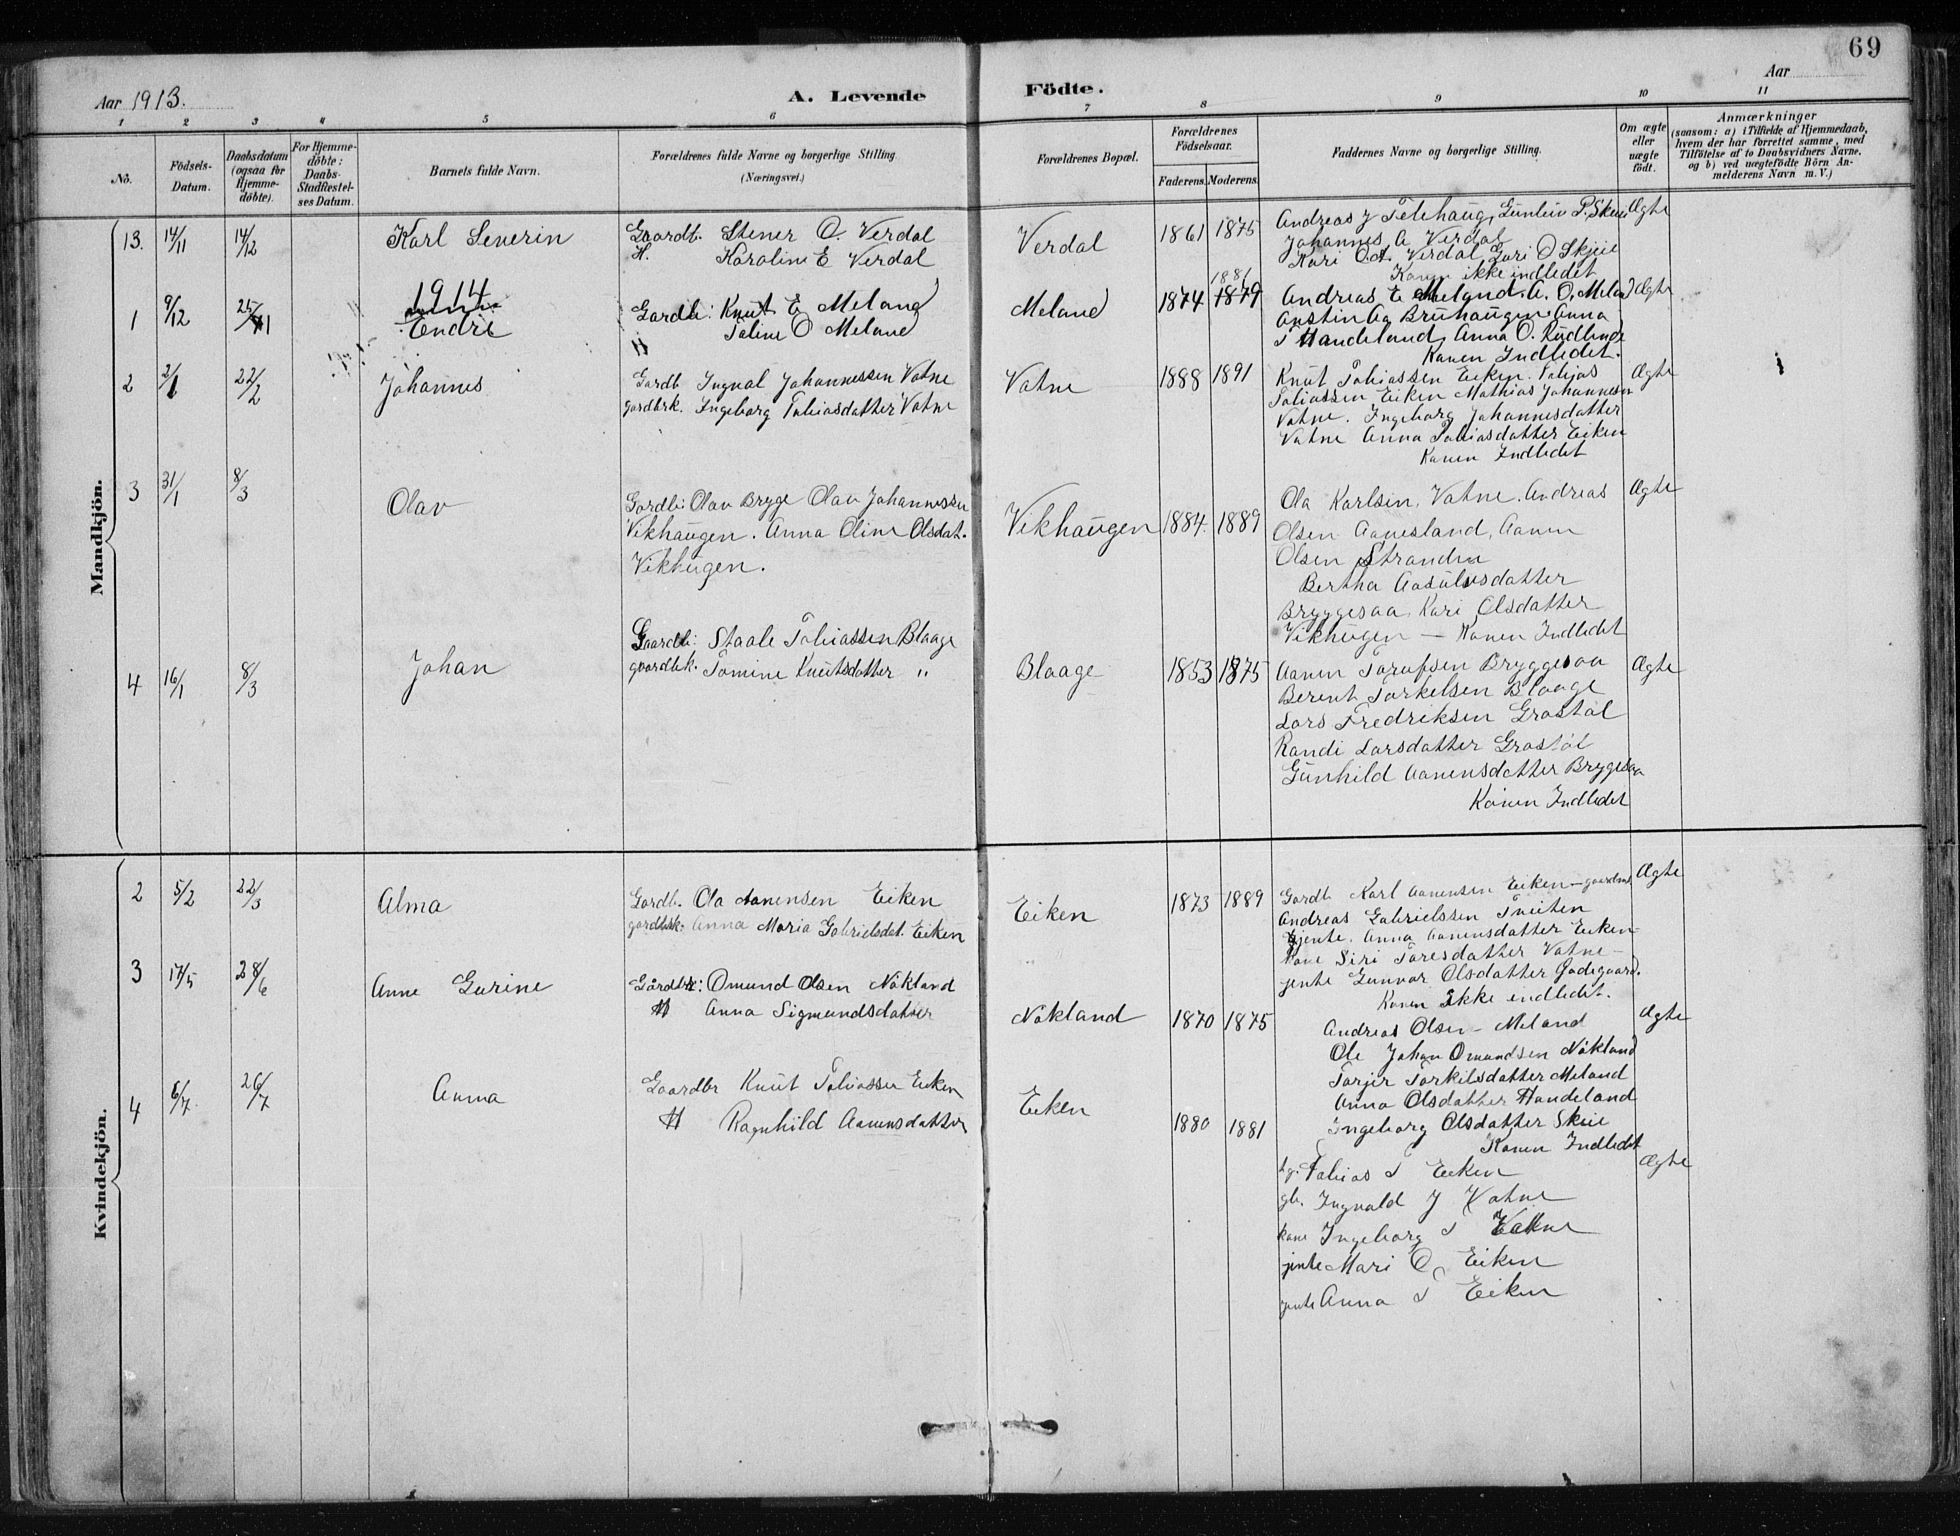 69
Aar 1913.
A. Levende Födte.
Aar
1 2 3 4 5 6 7 8 9 10 11
No.
Födsels-Datum.
Daabsdatum (ogsaa for Hjemme-döbte).
For Hjemme-döbte: Daabs-Stadfæstel-ses Datum.
Barnets fulde Navn.
Forældrenes fulde Navne og borgerlige Stilling (Næringsvei.)
Forældrenes Bopæl.
Forældrenes Födselsaar.
Faderens. Moderens.
Faddernes Navne og borgerlige Stilling.
Om ægte eller uægte födt.
Anmærkninger
(saasom: a) i Tilfælde af Hjemmedaab,
hvem der har forrettet samme, med
Tilföielse af to Daabsvidners Navne.
og b) ved uægtefödte Börn An-
melderens Navn m. V.)
Mandkjön.
13. 14/11 14/12 Karl Severin
Gaardb. Stener O. Verdal
H. Karoline E Verdal
Verdal 1861 1875
Andreas J Telehaug, Gunluv P. Skeie
Johannes A Verdal
Kari O A Verdal Guri O Skjeie
Konen ikke indledet
Ægte
1914
1 9/12 25/1 Endre
Gardb: Knut E Meland
H Taline O Meland
Meland 1874 1879 1881
Andreas E Meland. A. O. Meland
Anstin Aa Bruhaugen Anna
T Handeland, Anna O. Rudlende
Konen Indledet.
Ægte
2 2/1 22/2 Johannes
Gardb Ingval Johannessen Vatne
gardbrk. Ingeborg Tobiasdatter Vatne
Vatne 1888 1891
Knut Tobiassen Eiken. Tobjas
Tobiassen Eiken Mathias Johannesen
Vatne. Ingeborg Johannesdatter
Vatne Anna Tobiasdatter Eiken
Konen Indledet
Ægte
3 31/1 8/3 Olav
Gardb: Olav Bryge Olav Johannessen
Vikhaugen. Anna Oline Olsdat.
Vikhugen.
Vikhaugen 1884 1889
Ola Karlsen, Vatne. Andreas
Olsen Aanesland, Aanen
Olsen Strandra
Bertha Aasulvsdatter
Bryggesaa, Kari Olsdatter
Vikhugen — Konen Indledet
Ægte
4 16/1 8/3 Johan
Gaardb: Staale Tobiassen Blaage
gaardbk. Tomine Knutsdatter "
Blaage 1853 1875
Aanen Torufsen Bryggesaa
Berent Torkelsen Blaage
Lars Fredriksen Grostøl
Randi Larsdatter Grostøl
Gunhild Aanensdatter Brygesaa
Konen Indledet
Ægte
Kvindekjön.
2 5/2 22/3 Alma
Gardb. Ola Aanensen Eiken
gardbsk. Anna Maria Gabrielsdat. Eiken
Eiken 1873 1889
Gardb Karl Aanensen Eiken —
Andreas Gabrielssen Tveiten
Gjente. Anna Aanensdatter Eiken-
Kone Siri Toresdatter Vatne-
jente Gunvor Olsdatter Jadegaard.
Konen Ikke endledet.
Ægte
3 17/5 28/6 Anne Gurine
Gardbr: Omund Olsen Nökland
H Anna Sigmundsdatter
Nökland 1870 1875
Andreas Olsen - Meland
Ole Johan Omundsen Nökland
Torjer Torkilsdatter Meland
Anna Olsdatter Handeland
Ingeborg Olsdatter Skeie
Konen Indledet
Ægte
4 6/7 26/7 Anna
Gaardbr Knut Tobiassen Eiken
H Ragnhild Aanensdatter
Eiken 1880 1881
Tobias T Eiken
gb. Ingvald J Vatne
kone Ingeborg T Vatne
jente Mari O Eiken
jente Anna T Eiken
Ægte